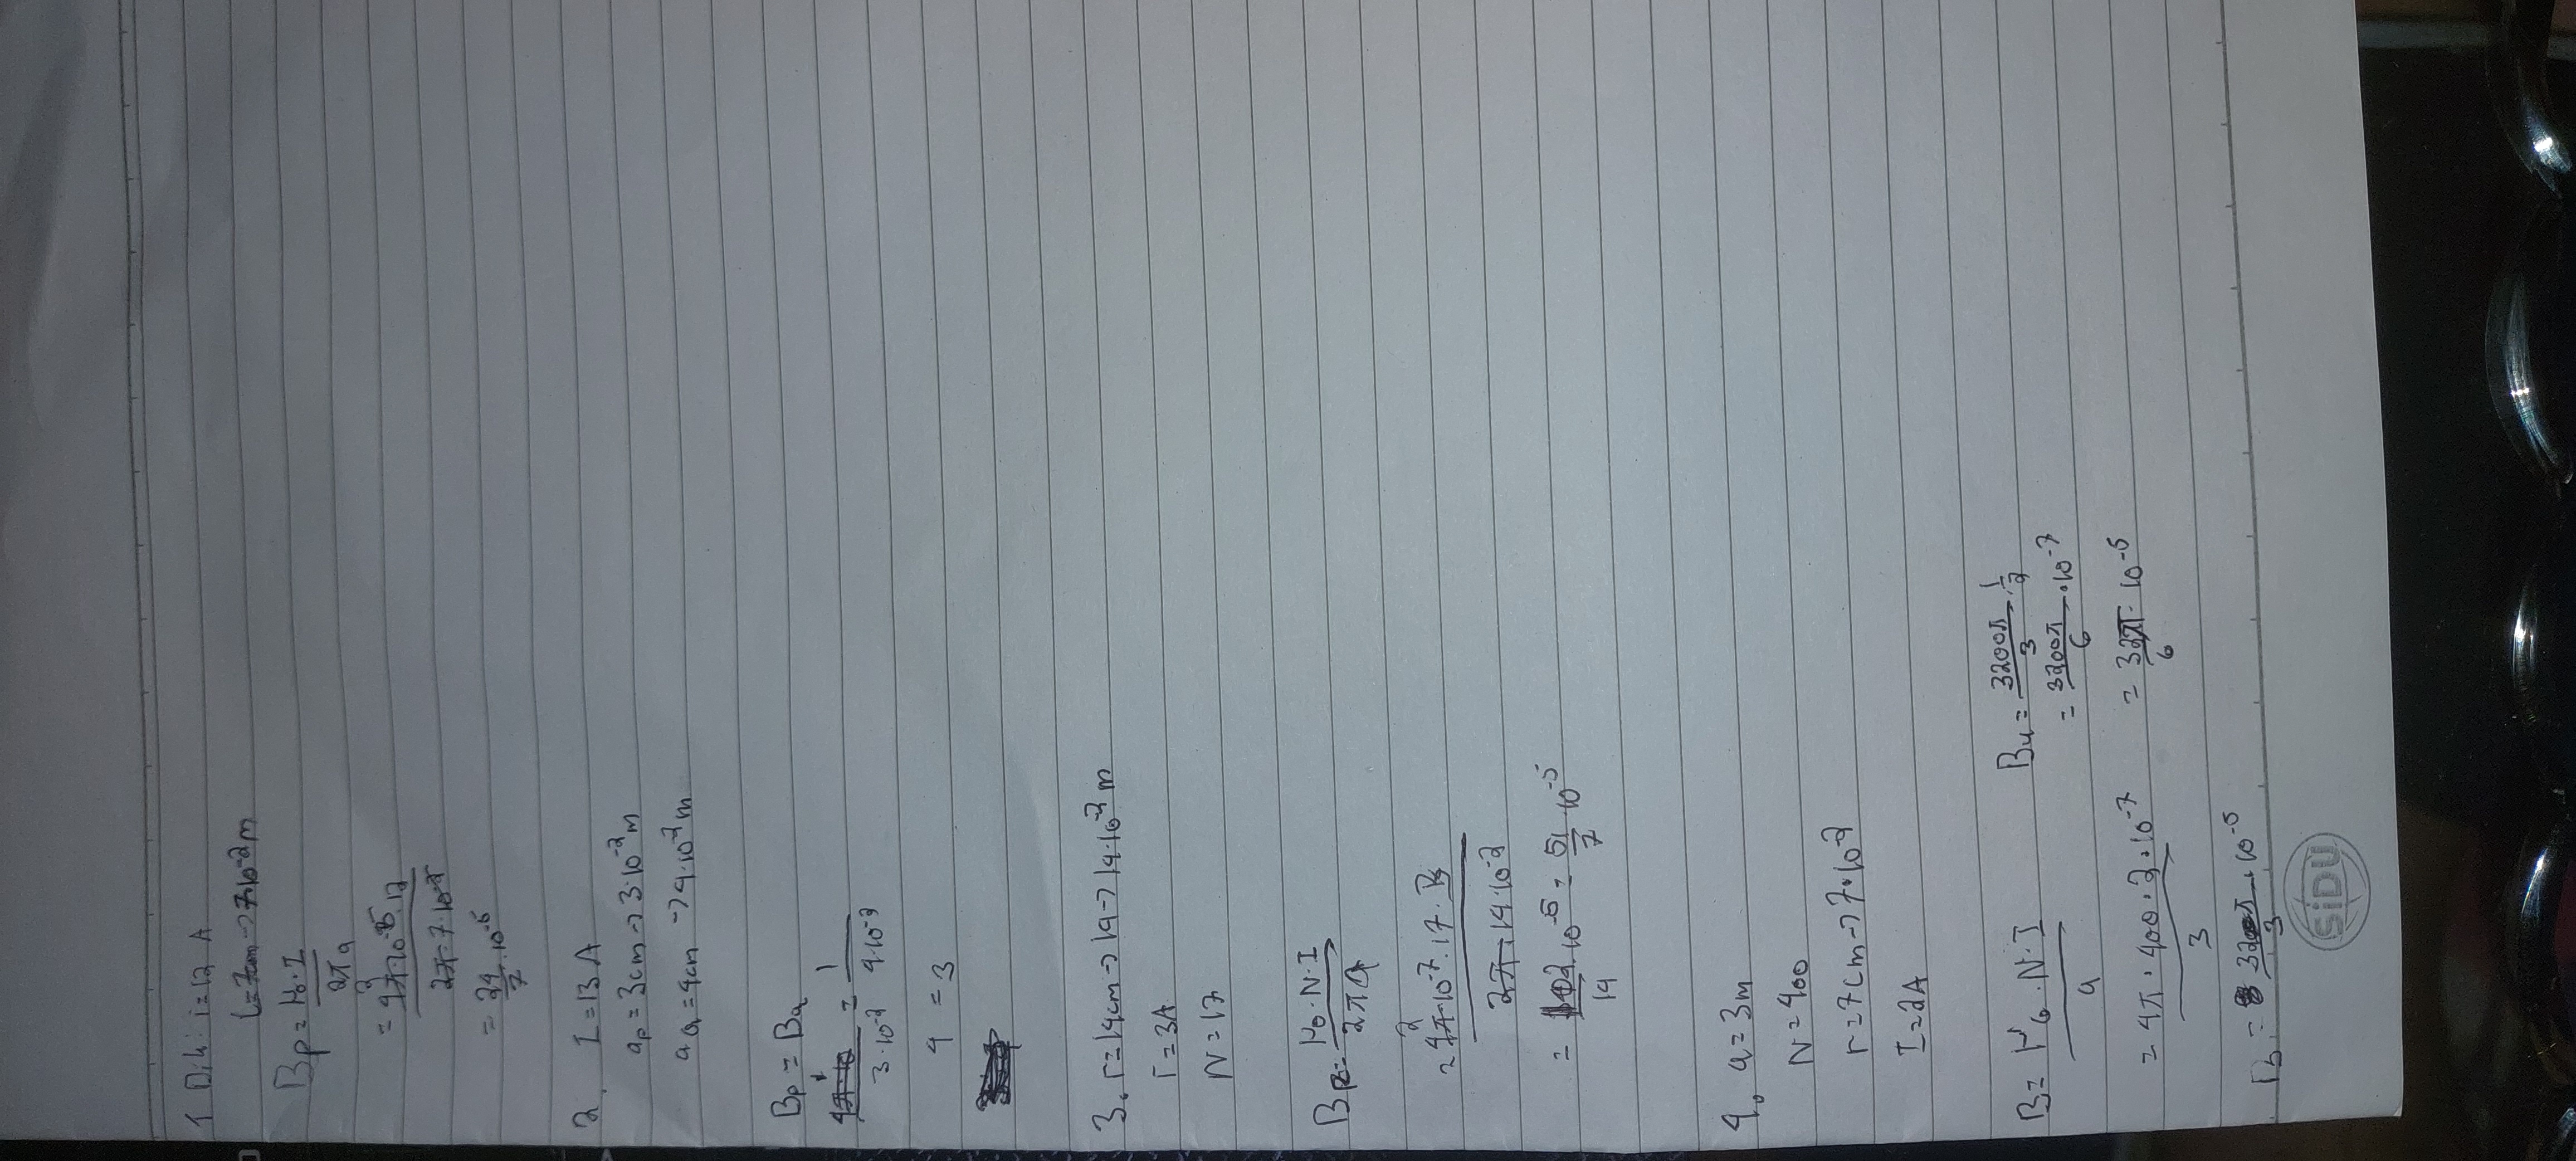 1 Dik: i = 12 A
l = 7cm -> 7·10^-2 m
Bp = μ0·I / 2πa
= 4π·10^-5·12 / 2π·7·10^-2
= 24/7 · 10^-5
2. I = 13 A
ap = 3cm -> 3·10^-2 m
aQ = 4cm -> 4·10^-2 m
Bp = BQ
1 / 3·10^-2 = 1 / 4·10^-2
4 = 3
3. r = 14cm -> 14 -> 14·10^-2 m
I = 3A
N = 17
Bp = μ0·N·I / 2πa
= 4π·10^-7·17·3 / 2π·14·10^-2
= 102/14 · 10^-5 = 51/7 · 10^-5
4. a = 3m
N = 400
r = 7cm -> 7·10^-2
I = 2A
B = μ0·N·I / a
= 4π·400·2·10^-7 / 3
B = 32π/3 · 10^-5
Bu = 3200π/3 · 1/2
= 3200π/6 · 10^-7
= 32π/6 · 10^-5
SiDU